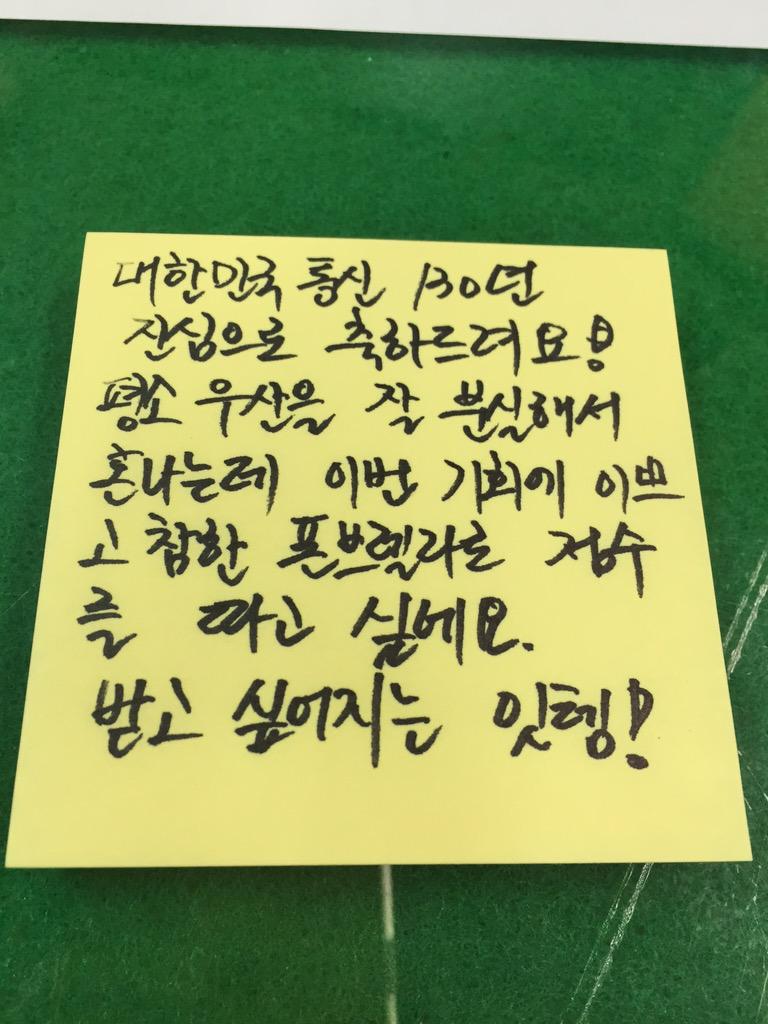 대한민국 통신 130년
진심으로 축하드려요!
평소 우산을 잘 분실해서
혼나는데 이번 기회에 이쁘
고 참한 폰브렐라로 점수
를 따고 싶네요.
받고 싶어지는 잇템!